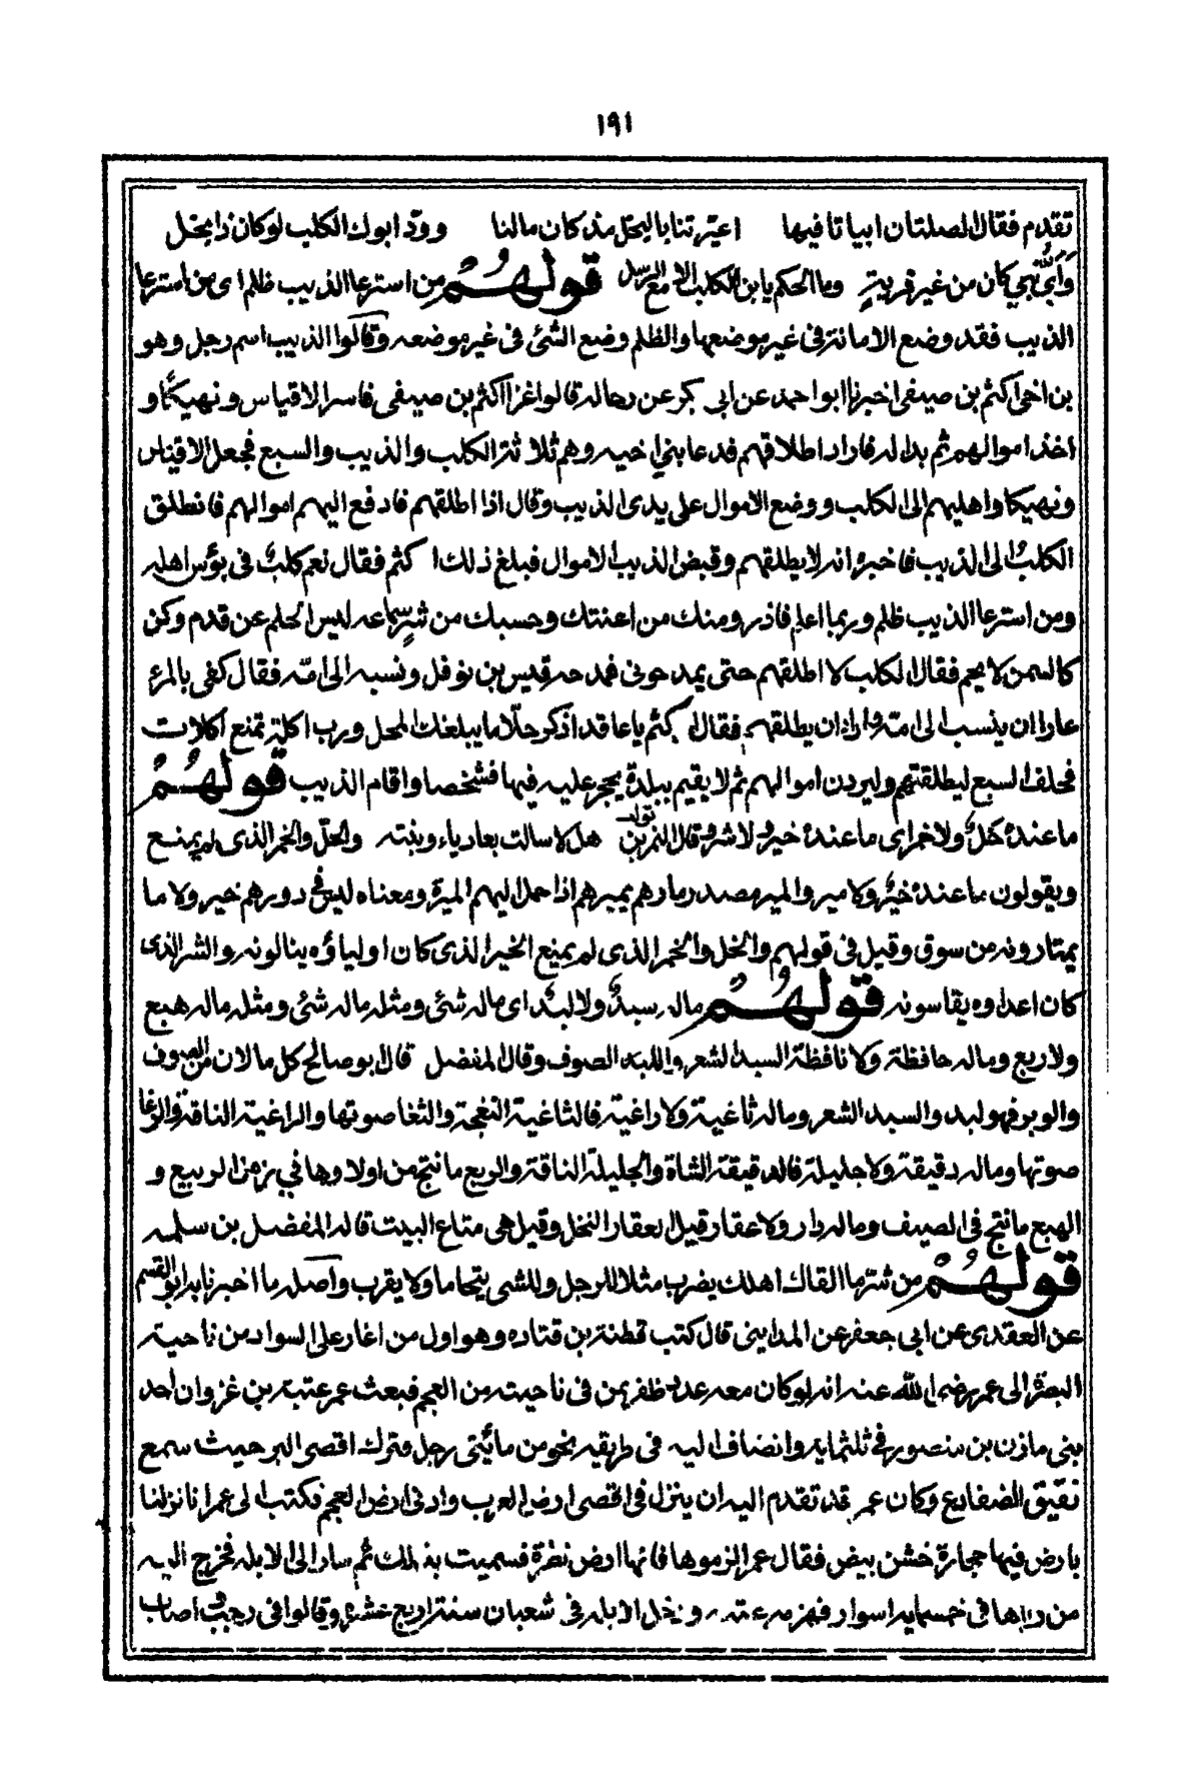 ١٩١
تقدم فقال الصلتان ابياتا فيها اعيرتنا بالبخل مذ كان مالنا وودّ ابوك الكلب لو كان ذا بخل
وأيّ نبي كان من غير قرية وما الحكم يا ابن الكلب الا مع الرسل قولهم من استرعا الذيب ظلم اى من استرعا
الذيب فقد وضع الامانة فى غير موضعها والظلم وضع الشئ فى غير موضعه وقالوا الذيب اسم رجل وهو
بن اخى اكثم بن صيفى اخبرنا ابو احمد عن ابى بكر عن رجاله قالوا غزا اكثم بن صيفى فاسر الاقياس ونهيكا و
اخذ اموالهم ثم بدا له فاراد اطلاقهم فدعا بنى اخيه وهم ثلاثة الكلب والذيب والسبع فجعل الاقياس
ونهيكا واهليهم الى الكلب ووضع الاموال على يدى الذيب وقال اذا اطلقهم فادفع اليهم اموالهم فانطلق
الكلب الى الذيب فاخبره انه لا يطلقهم وقبض الذيب الاموال فبلغ ذلك اكثم فقال نعم كلب فى بؤس اهله
ومن استرعا الذيب ظلم وربما اعلم فاذر ومنك من اعنتك وحسبك من شر سماعه ليس الحلم عن قدم وكن
كالسمن لا يخم فقال الكلب لا اطلقهم حتى يمدحونى فمدحه قيس بن نوفل ونسبه الى امه فقال كفى بالمرء
عارا ان ينسب الى امه واراد ان يطلقهم فقال اكثم يا عاقد اذكر حلّا ما يبلغك المحل ورب اكلة تمنع اكلات
فحلف السبع ليطلقنهم وليردن اموالهم ثم لا يقيم ببلدة يجر عليه فيها فشخصا واقام الذيب قولهم
ما عنده خل ولا خمر اى ما عنده خير ولا شر وقال النمر بن تولب هلا سالت بعادياء وبيته والخل والخمر الذى لم يمنع
ويقولون ما عنده خير ولا مير والمير مصدر مارهم يميرهم اذا حمل اليهم الميرة ومعناه ليس فى دورهم خير ولا ما
يمتارونه من سوق وقيل فى قولهم والخل والخمر الذى لم يمنع الخير الذى كان اولياؤه ينالونه والشر الذى
كان اعداوه يقاسونه قولهم ماله سبد ولا لبد اى ماله شئ ومثله ماله شئ ومثله ماله هبع
ولا ربع وماله حافظة ولا نافظة السبد الشعر واللبد الصوف وقال المفضل قال ابو صالح كل ما لان من الصوف
والوبر فهو لبد والسبد الشعر وماله ثاغية ولا راغية فالثاغية النعجة والثغا صوتها والراغية الناقة والرغا
صوتها وماله دقيقة ولا جليلة فالدقيقة الشاة والجليلة الناقة والربع ما نتج من اولادها فى زمن الربيع و
الهبع ما نتج فى الصيف وماله دار ولا عقار قيل العقار النخل وقيل هى متاع البيت قاله المفضل بن سلمه
قولهم من شر ما القاك اهلك يضرب مثلا للرجل وللشى يتحاما ولا يقرب واصله ما اخبرنا به ابو القسم
عن العقدى عن ابى جعفر عن المداينى قال كتب قطنة بن قتاده وهو اول من اغار على السواد من ناحيته
البصرة الى عمر رضى الله عنه انه لو كان معه عدد ظفر بمن فى ناحيته من العجم فبعث عمر عتبة بن غزوان احد
بنى مازن بن منصور فى ثلثماية وانضاف اليه فى طريقه نحو من مأيتى رجل فترك اقصى البر حيث سمع
نقيق الضفادع وكان عمر قد تقدم اليه ان ينزل فى اقصى ارض العرب وادنى ارض العجم فكتب الى عمر انا نزلنا
بارض فيها حجارة خشن بيض فقال عمر الزموها فانها ارض نظرة فسميت بذلك ثم سار الى الابله فخرج اليه
من فى خمسماية اسوار فهزمهم عتبه ودخل الابله فى شعبان سنة اربع عشره وقالوا فى رجب اصاب